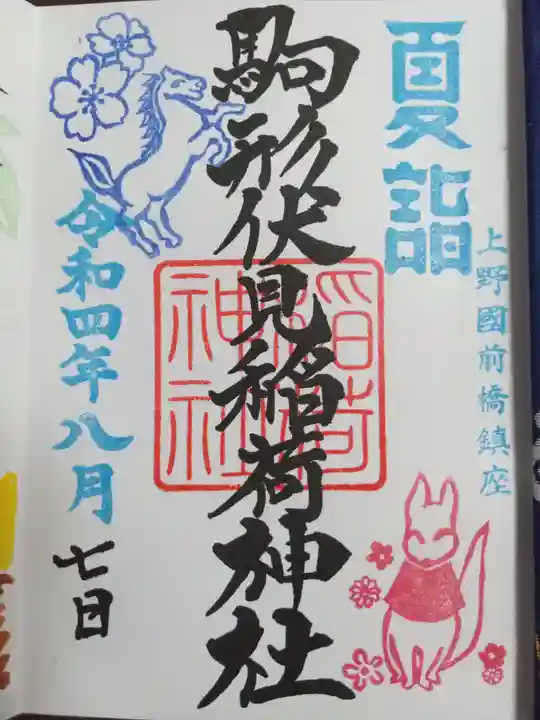 夏詣
上野國前橋鎮座
駒形伏見稲荷神社
令和四年八月
七日